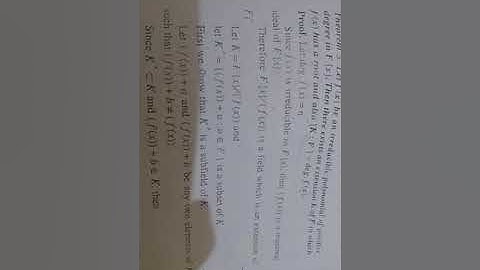 Theorem 5. Let f(x) be an irreducible polynomial of positive
degree in F[x]. Then there exists an extension K of F in which
f(x) has a root and also [K : F] = deg. f(x).
Proof. Let deg. f(x) = n
Since f(x) is irreducible in F[x], then (f(x)) is a maximal
ideal of F[x]
Therefore F[x]/(f(x)) is a field which is an extension of
F
Let K = F[x]/(f(x)) and
let K* = {(f(x)) + a : a ∈ F} is a subset of K
First we show that K* is a subfield of K.
Let (f(x)) + a and (f(x)) + b be any two elements of
such that (f(x)) + b ≠ (f(x))
Since K* ⊂ K and (f(x)) + b ∈ K, then